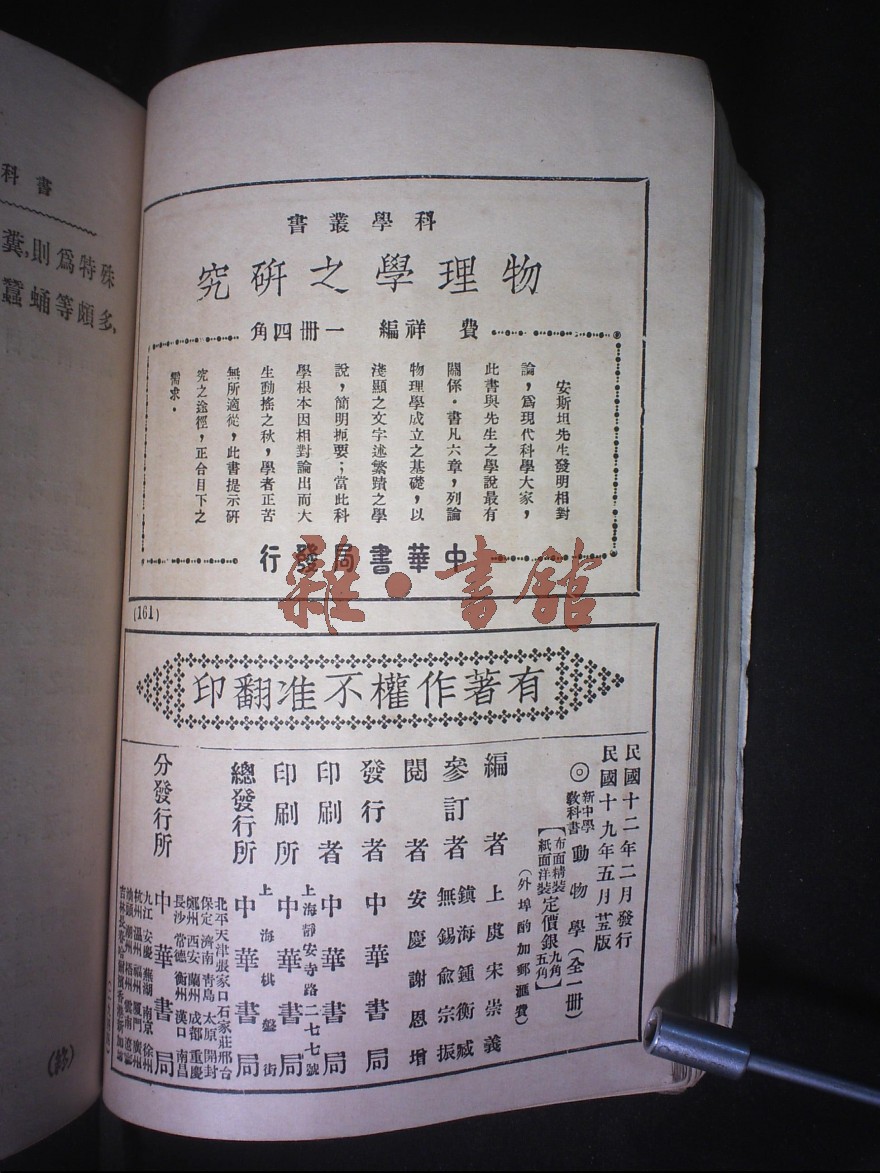 科書
殊特爲則,糞
多,頗等蛹蠶
科學叢書
物理學之硏究
費祥編 一册四角
安斯坦先生發明相對
論，爲現代科學大家，
此書與先生之學說最有
關係．書凡六章，列論
物理學成立之基礎，以
淺顯之文字述繁賾之學
說，簡明扼要；當此科
學根本因相對論出而大
生動搖之秋，學者正苦
無所適從，此書提示硏
究之途徑，正合目下之
需求．
中華書局發行
(161)
有著作權不准翻印
民國十二年二月發行
民國十九年五月廿五版
◎新中學教科書動物學(全一册)
【布面精裝 紙面洋裝】定價銀九角 五角
(外埠酌加郵滙費)
編者 上虞宋崇義
參訂者 鎮海鍾衡臧
無錫俞宗振
閱者 安慶謝恩增
發行者 中華書局
印刷者 上海靜安寺路二七七號 中華書局
印刷所
總發行所 上海棋盤街 中華書局
分發行所 中華書局
北平 天津 張家口 石家莊 邢台
保定 濟南 青島 太原 開封
鄭州 西安 蘭州 成都 重慶
長沙 常德 衡州 漢口 南昌
九江 安慶 蕪湖 南京 徐州
杭州 温州 福州 厦門 廣州
雜·書館